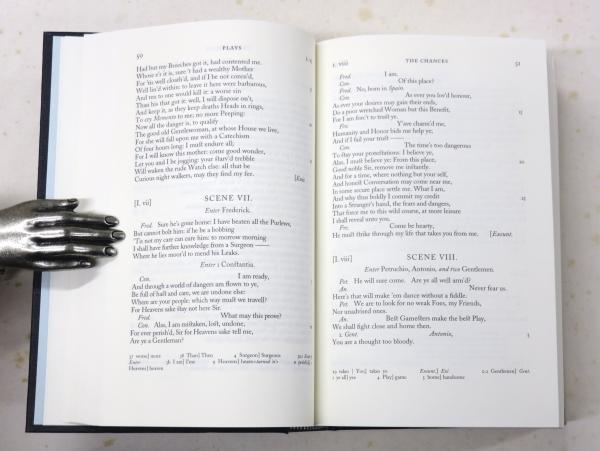 50
PLAYS
Had but my Breeches got it, had contented me.
Whose e'r it is, sure 't had a wealthy Mother
For 'tis well cloath'd, and if I be not cozen'd,
Well lin'd within: to leave it here were barbarous,
And ten to one would kill it: a worse sin
Than his that got it: well, I will dispose on't,
And keep it, as they keep deaths Heads in rings,
To cry Memento to me; no more Peeping:
Now all the danger is, to qualify
The good old Gentlewoman, at whose House we live,
For she will fall upon me with a Catechism
Of four hours long: I must endure all;
For I will know this mother: come good wonder,
Let you and I be jogging: your starv'd trebble
Will waken the rude Watch else: all that be
Curious night walkers, may they find my fee. [Exit
[I. vii] SCENE VII.
Enter Frederick.
Fred. Sure he's gone home: I have beaten all the Purlews,
But cannot bolt him: if he be a bobbing
'Tis not my care can cure him: to morrow morning
I shall have further knowledge from a Surgeon
Where he lies moor'd to mend his Leaks.
Enter Constantia.
Con. I am ready,
And through a world of dangers am flown to ye,
Be full of haste and care, we are undone else:
Where are your people: which way must we travell?
For Heavens sake stay not here Sir.
Fred. What may this prove?
Con. Alas, I am mistaken, lost, undone,
For ever perish'd, Sir for Heavens sake tell me,
Are ye a Gentleman?
I. viii THE CHANCES 51
Fred. I am.
Con. Of this place?
Fred. No, born in Spain.
Con. As ever you lov'd honour,
As ever your desires may gain their ends,
Do a poor wretched Woman but this Benefit,
For I am forc't to trust ye. 15
Fre. Y'ave charm'd me,
Humanity and Honor bids me help ye;
And if I fail your trust
Con. The time's too dangerous
To stay your protestations: I believe ye,
Alas, I must believe ye: From this place, 20
Good noble Sir, remove me instantly.
And for a time, where nothing but your self,
And honest Conversation may come near me,
In some secure place settle me. What I am,
And why thus boldly I commit my credit
Into a Stranger's hand, the fears and dangers,
That force me to this wild course, at more leisure
I shall reveal unto you.
Fre. Come be hearty,
He must strike through my life that takes you from me. [Exeunt.
[I. viii] SCENE VIII.
Enter Petruchio, Antonio, and two Gentlemen.
Pet. He will sure come. Are ye all well arm'd?
An. Never fear us.
Here's that will make 'em dance without a fiddle.
Pet. We are to look for no weak Foes, my Friends,
Nor unadvised ones.
An. Best Gamesters make the best Play,
We shall fight close and home then.
1 Gent. Antonio, 5
You are a thought too bloody.